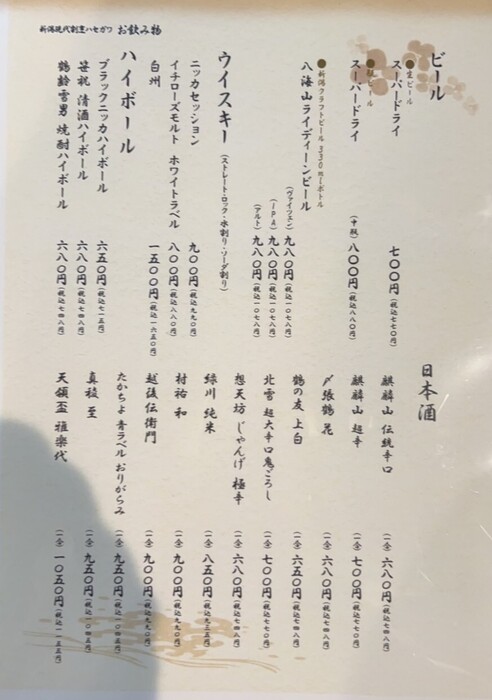 新潟現代割烹ハセガワ お飲み物
ビール
●生ビール
スーパードライ 七〇〇円(税込七七〇円)
●瓶ビール
スーパードライ (中瓶) 八〇〇円(税込八八〇円)
●新潟クラフトビール 330mlボトル
八海山ライディーンビール
(ヴァイツェン) 九八〇円(税込一〇七八円)
(IPA) 九八〇円(税込一〇七八円)
(アルト) 九八〇円(税込一〇七八円)
ウイスキー (ストレート・ロック・水割り・ソーダ割り)
ニッカセッション 九〇〇円(税込九九〇円)
イチローズモルト ホワイトラベル 八〇〇円(税込八八〇円)
白州 一五〇〇円(税込一六五〇円)
ハイボール
ブラックニッカハイボール 六五〇円(税込七一五円)
笹祝 清酒ハイボール 六八〇円(税込七四八円)
鶴齢雪男 焼酎ハイボール 六八〇円(税込七四八円)
日本酒
麒麟山 伝統辛口 (一合) 六八〇円(税込七四八円)
麒麟山 超辛 (一合) 七〇〇円(税込七七〇円)
〆張鶴 花 (一合) 六八〇円(税込七四八円)
鶴の友 上白 (一合) 六五〇円(税込七一五円)
北雪 超大辛口鬼ごろし (一合) 七〇〇円(税込七七〇円)
想天坊 じゃんげ 極辛 (一合) 六八〇円(税込七四八円)
緑川 純米 (一合) 八五〇円(税込九三五円)
村祐 和 (一合) 九〇〇円(税込九九〇円)
越後伝衛門 (一合) 九〇〇円(税込九九〇円)
たかちよ 青ラベル おりがらみ (一合) 九五〇円(税込一〇四五円)
真稜 至 (一合) 九五〇円(税込一〇四五円)
天領盃 雅楽代 (一合) 一〇五〇円(税込一一五五円)